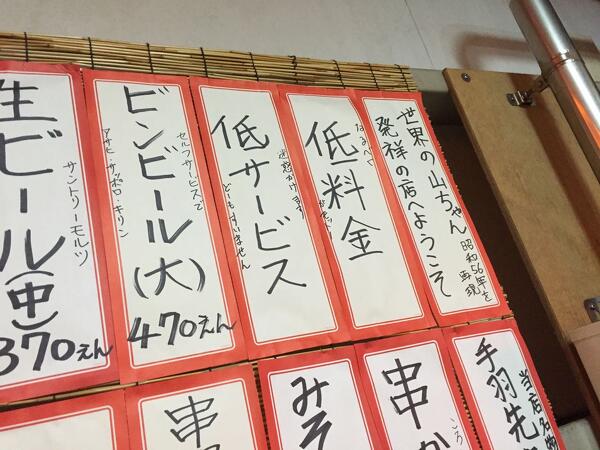 世界の山ちゃん
発祥の店へようこそ
昭和56年を
再現
なるべく
低料金
低サービス
迷惑かけます
どーもすいません
ビンビール(大)
セルフサービスで
アサヒ・サッポロ・キリン
470えん
生ビール(中)
サントリーモルツ
370えん
手羽先
当店名物
串か
みそ
串